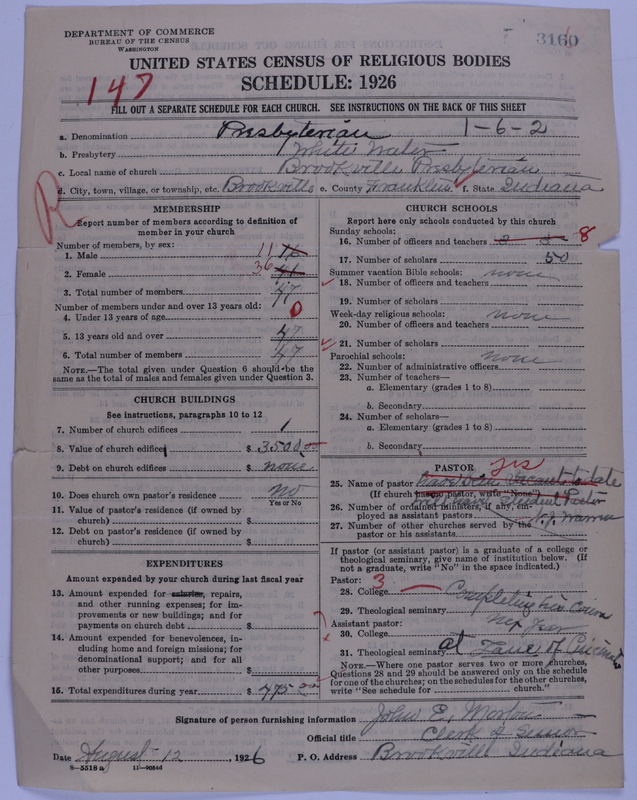 DEPARTMENT OF COMMERCE
BUREAU OF THE CENSUS
WASHINGTON
3160
UNITED STATES CENSUS OF RELIGIOUS BODIES
SCHEDULE: 1926
147
FILL OUT A SEPARATE SCHEDULE FOR EACH CHURCH. SEE INSTRUCTIONS ON THE BACK OF THIS SHEET
a. Denomination Presbyterian 1-6-2
b. Presbytery White Water
c. Local name of church Brookville Presbyterian
d. City, town, village, or township, etc. Brookville e. County Franklin f. State Indiana
R
MEMBERSHIP
Report number of members according to definition of member in your church
Number of members, by sex:
1. Male 11
2. Female 36 41
3. Total number of members 47
Number of members under and over 13 years old:
4. Under 13 years of age 0
5. 13 years old and over 47
6. Total number of members 47
NOTE.—The total given under Question 6 should be the
same as the total of males and females given under Question 3.
CHURCH BUILDINGS
See instructions, paragraphs 10 to 12
7. Number of church edifices 1
8. Value of church edifices $ 3500.00
9. Debt on church edifices $ none
10. Does church own pastor's residence no
Yes or No
11. Value of pastor's residence (if owned by
church) $
12. Debt on pastor's residence (if owned by
church) $
EXPENDITURES
Amount expended by your church during last fiscal year
13. Amount expended for salaries, repairs,
and other running expenses; for im-
provements or new buildings; and for
payments on church debt $
14. Amount expended for benevolences, in-
cluding home and foreign missions; for
denominational support; and for all
other purposes $
15. Total expenditures during year $ 475.00
CHURCH SCHOOLS
Report here only schools conducted by this church
Sunday schools:
16. Number of officers and teachers 8
17. Number of scholars 50
Summer vacation Bible schools: none
18. Number of officers and teachers
19. Number of scholars
Week-day religious schools: none
20. Number of officers and teachers
21. Number of scholars
Parochial schools: none
22. Number of administrative officers
23. Number of teachers—
a. Elementary (grades 1 to 8)
b. Secondary
24. Number of scholars—
a. Elementary (grades 1 to 8)
b. Secondary
PASTOR yes
25. Name of pastor Have been Vacant to date
(If church has no pastor, write "None")
26. Number of ordained ministers, if any, em-
ployed as assistant pastors
have Student Pastor
27. Number of other churches served by the
pastor or his assistants
If pastor (or assistant pastor) is a graduate of a college or
theological seminary, give name of institution below. (If
not a graduate, write "No" in the space indicated.)
Pastor: 3
28. College Completing his Course
29. Theological seminary
Assistant pastor:
30. College
31. Theological seminary at Lane of Cincinnati
NOTE.—Where one pastor serves two or more churches,
Questions 28 and 29 should be answered only on the schedule
for one of the churches; on the schedules for the other churches,
write "See schedule for church."
Signature of person furnishing information John E. Morton
Official title Clerk of Session
Date August 12, 1926 P. O. Address Brookville Indiana
8—5518a 11—90544